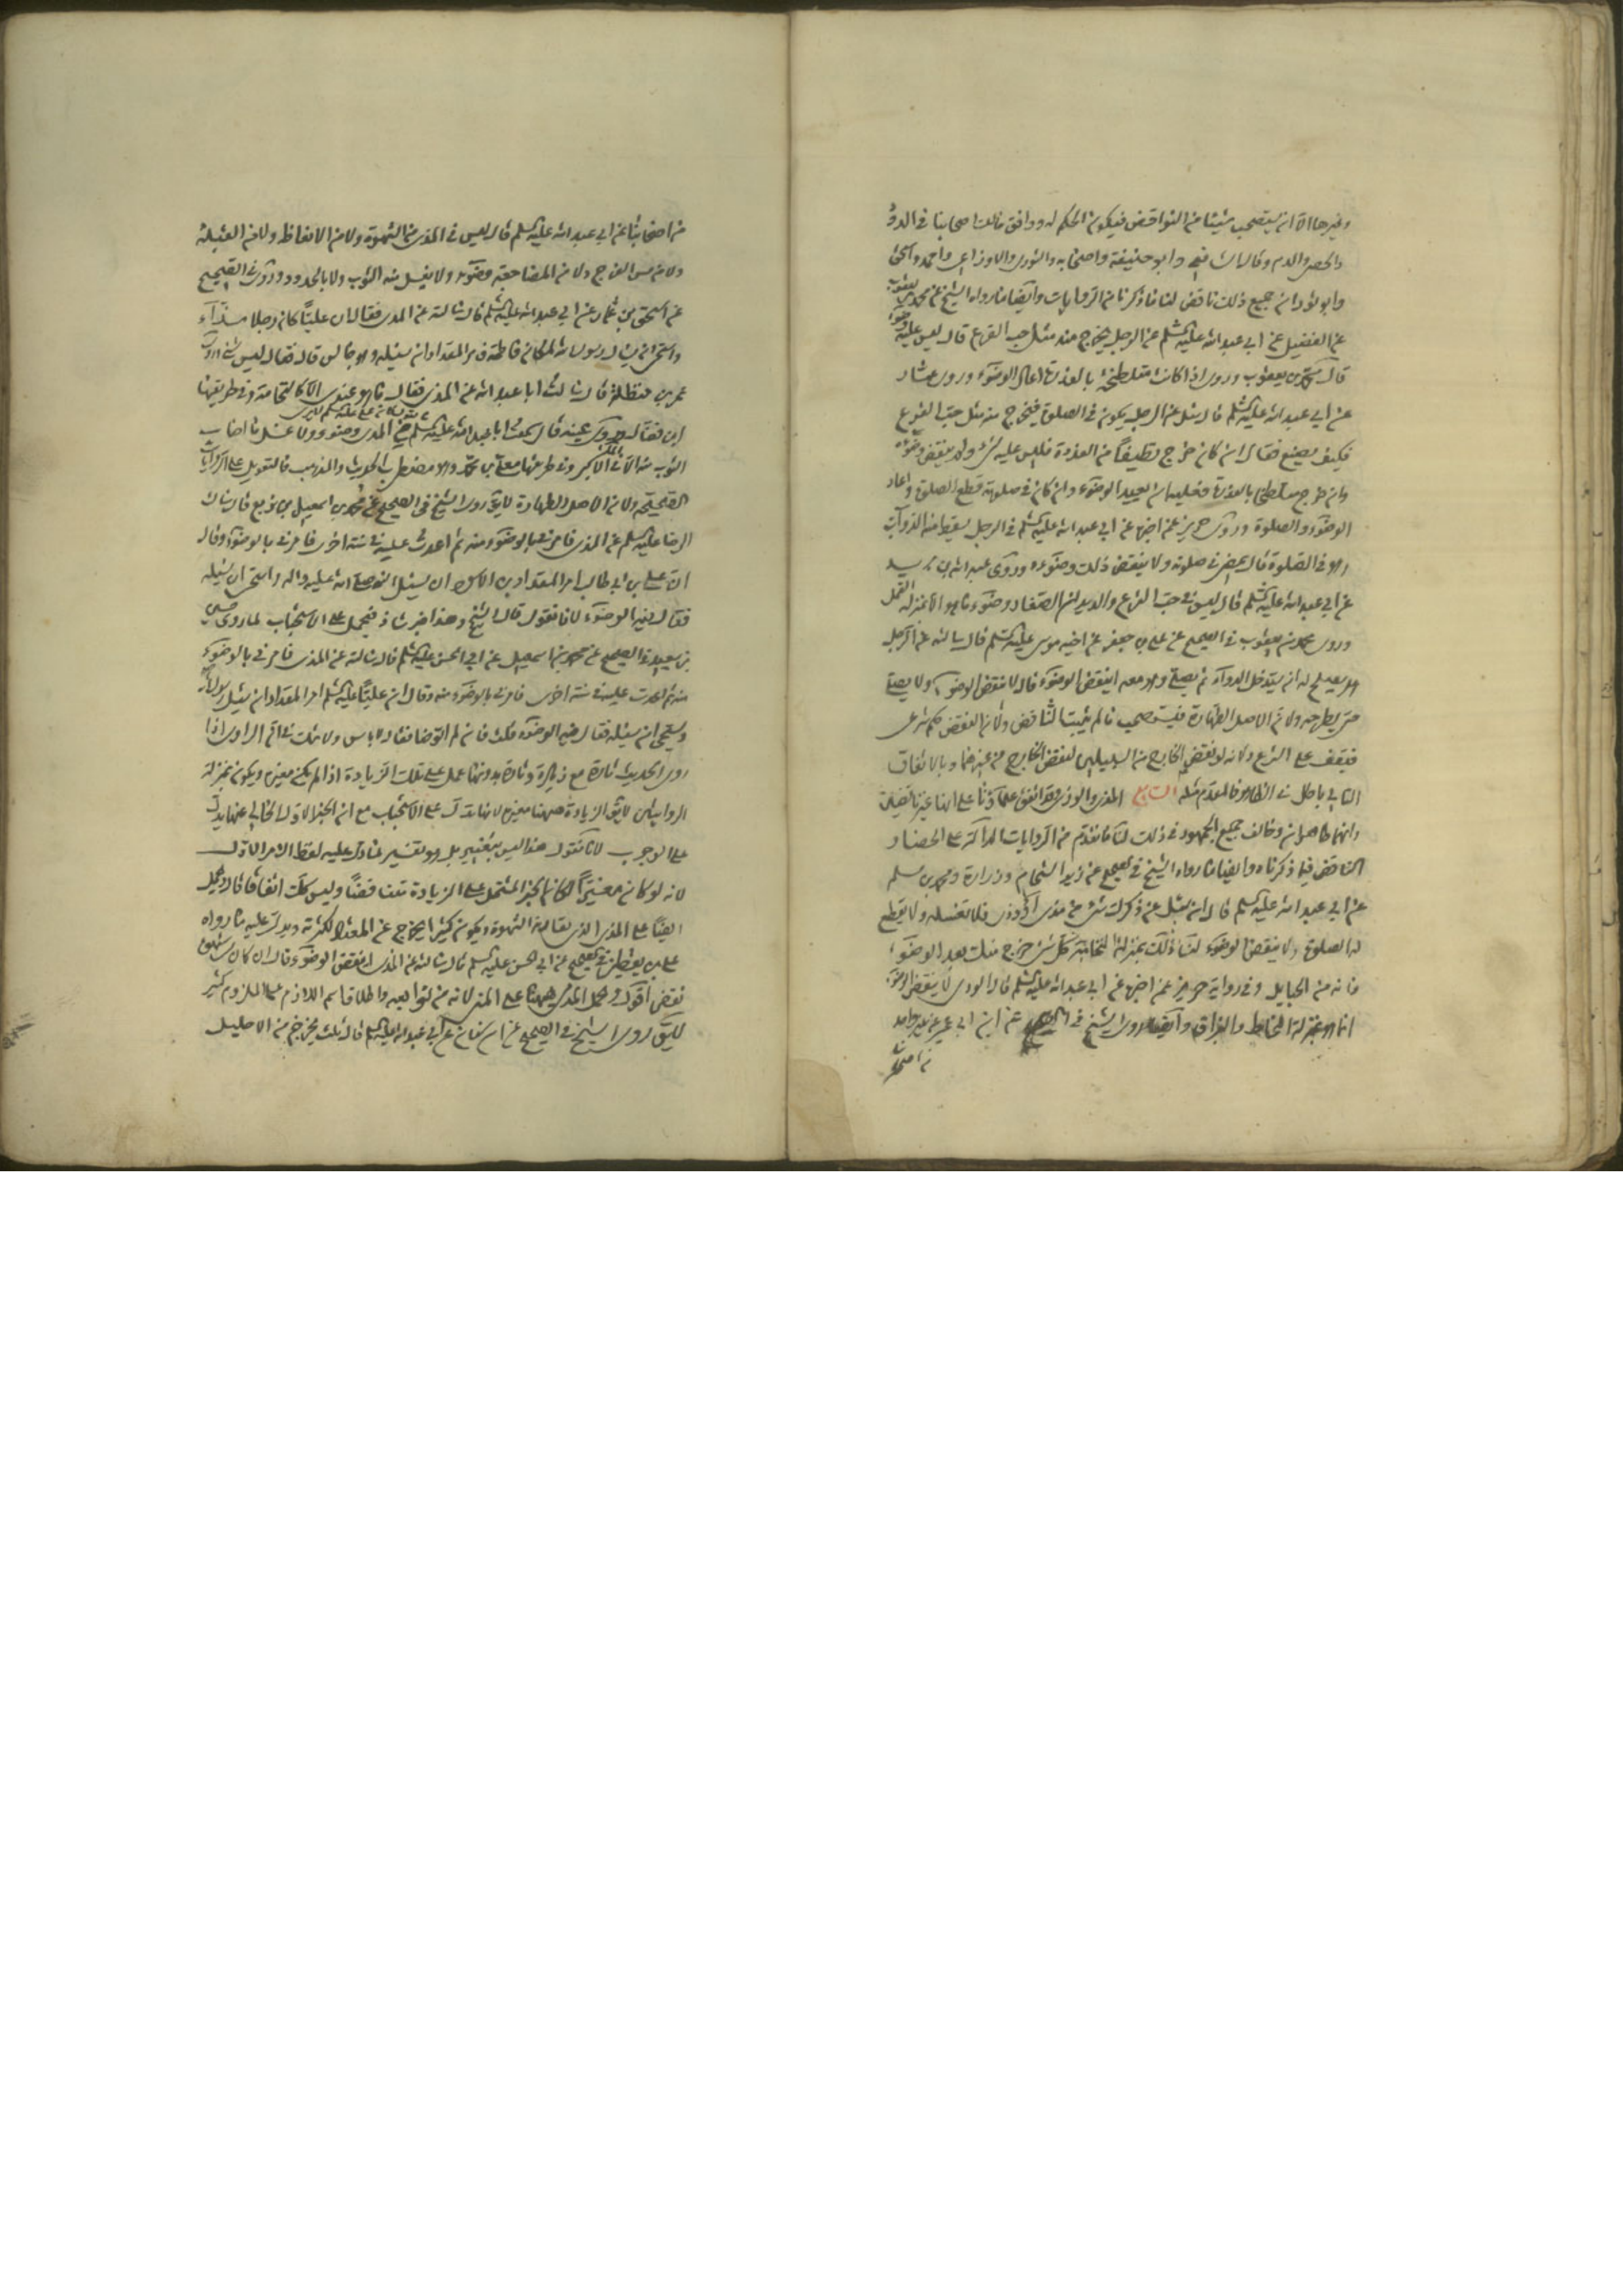 وغيرها الا ان يستصحب شيئا من النواقض فيكون الحكم له ووافق مالك اصحابنا في الدود
والحصى والدم وقال الشافعي وابو حنيفة واصحابه والثوري والاوزاعي واحمد واسحق
وابو ثور ان جميع ذلك ناقض لنا ما ذكرنا من الروايات وايضا ما رواه الشيخ عن محمد بن يعقوب
عن الفضيل عن ابي عبد الله عليه السلم عن الرجل يخرج منه مثل حب القرع قال ليس عليه وضوء
قال محمد بن يعقوب وروى اذا كانت متلطخة بالعذرة اعاد الوضوء وروى عمار
عن ابي عبد الله عليه السلم قال سئل عن الرجل يكون في الصلوة فيخرج منه مثل حب القرع
فكيف يصنع فقال ان كان خرج نظيفا من العذرة فليس عليه شيء ولم ينقض وضوئه
وان خرج متلطخا بالعذرة فعليه ان يعيد الوضوء وان كان في صلوته قطع الصلوة واعاد
الوضوء والصلوة وروى حريز عمن اخبره عن ابي عبد الله عليه السلم في الرجل يسقط منه الدواب
وهو في الصلوة قال يمضي في صلوته ولا ينقض ذلك وضوءه وروى عبد الله بن يزيد
عن ابي عبد الله عليه السلم قال ليس في حب القرع والديدان الصغار وضوء ما هو الا بمنزلة القمل
وروى محمد بن يعقوب في الصحيح عن علي بن جعفر عن اخيه موسى عليه السلم قال سالته عن الرجل
هل يصلح له ان يستدخل الدواء ثم يصلي وهو معه اينقض الوضوء قال لا ينقض الوضوء ولا يصلي
حتى يطرحه ولان الاصل الطهارة فيستصحب ما لم يثبت الناقض ولان النقض حكم شرعي
فيقف على الشرع ولانه لو نقض الخارج من السبيلين لنقض الخارج من غيرهما وبالاتفاق
التالي باطل فالمقدم مثله السابع المذي والوذي وقد اتفق علماؤنا على انهما غير ناقضين
وانهما طاهران وخالف جميع الجمهور في ذلك لنا ما تقدم من الروايات الدالة على انحصار
الناقض فيما ذكرناه وايضا ما رواه الشيخ في الصحيح عن زيد الشحام وزرارة ومحمد بن مسلم
عن ابي عبد الله عليه السلم قال ان سئل عن ذكرك شيء من مذي او وذي فلا تغسله ولا يقطع
له الصلوة ولا ينقض الوضوء لنا ذلك بمنزلة النخامة كل شيء خرج منك بعد الوضوء
فانه من الحبايل وفي رواية حريز عمن اخبره عن ابي عبد الله عليه السلم قال الودي لا ينقض الوضوء
انما هو بمنزلة المخاط والبزاق وايضا روى الشيخ في الصحيح عن ابن ابي عمير عن غير واحد
من اصحابنا
من اصحابنا عن ابي عبد الله عليه السلم قال ليس في المذي من الشهوة ولا من الانعاظ ولا من القبلة
ولا من مس الفرج ولا من المضاجعة وضوء ولا يغسل منه الثوب ولا الجسد وروى في الصحيح
عن اسحق بن عمار عن ابي عبد الله عليه السلم قال سالته عن المذي فقال ان عليا كان رجلا مذاء
واستحى ان يسال رسول الله لمكان فاطمة فامر المقداد ان يسئله وهو جالس قال فقال ليس بشيء وروى
عمر بن حنظلة قال سالت ابا عبد الله عن المذي فقال ما هو عندي الا كالنخامة وفي طريقها
ابن فضال وروى عنبسة قال سمعت ابا عبد الله عليه السلم في المذي وضوء ولا غسل ما اصاب
الثوب منه الا في الماء الاكبر وفي طريقها معلى بن محمد وهو مضطرب الحديث والمذهب فالتعويل على الروايات
الصحيحة ولان الاصل الطهارة لا يق روى الشيخ في الصحيح عن محمد بن اسمعيل بن بزيع قال سالت
الرضا عليه السلم عن المذي فامرني بالوضوء منه ثم اعدت عليه في سنة اخرى فامرني بالوضوء وقال
ان علي بن ابي طالب امر المقداد بن الاسود ان يسئل النبي صلى الله عليه واله واستحى ان يسئله
فقال فيه الوضوء لانا نقول قال الشيخ وهذا خبر شاذ فيحمل على الاستحباب لما روى حسين
بن سعيد في الصحيح عن محمد بن اسمعيل عن ابي الحسن عليه السلم قال سالته عن المذي فامرني بالوضوء
منه ثم اعدت عليه في سنة اخرى فامرني بالوضوء منه وقال ان عليا عليه السلم امر المقداد ان يسئل رسول الله
ويستحيى ان يسئله فقال فيه الوضوء قلت فان لم اتوضا فقال لا باس ولا شك في ان الراوي اذا
روى الحديث تارة مع زيادة وتارة بدونها عمل على تلك الزيادة اذا لم يكن مغيرة ويكون بمنزلة
الروايتين لا يق الزيادة ههنا مغيرة لانها تدل على الاستحباب مع ان الخبر الاول الخالي عنها يدل
على الوجوب لانا نقول هذا ليس بتغيير بل هو تفسير لما دل عليه لفظ الامر الاول
لانه لو كان مغيرا لكان الخبر المشتمل على الزيادة متناقضا وليس كذلك اتفاقا قال ويحمل
ايضا على المذي الذي يقارنه الشهوة ويكون كثيرا يخرج عن المعتاد لكثرته ويدل عليه ما رواه
علي بن يقطين في الصحيح عن ابي الحسن عليه السلم قال سالته عن المذي اينقض الوضوء قال ان كان من شهوة
نقض اقول ويحمل المذي ههنا على المني لانه من توابعه واطلاق اسم اللازم على الملزوم كثير
لا يق روى الشيخ في الصحيح عن ابن سنان عن ابي عبد الله عليه السلم قال ثلث يخرجن من الاحليل